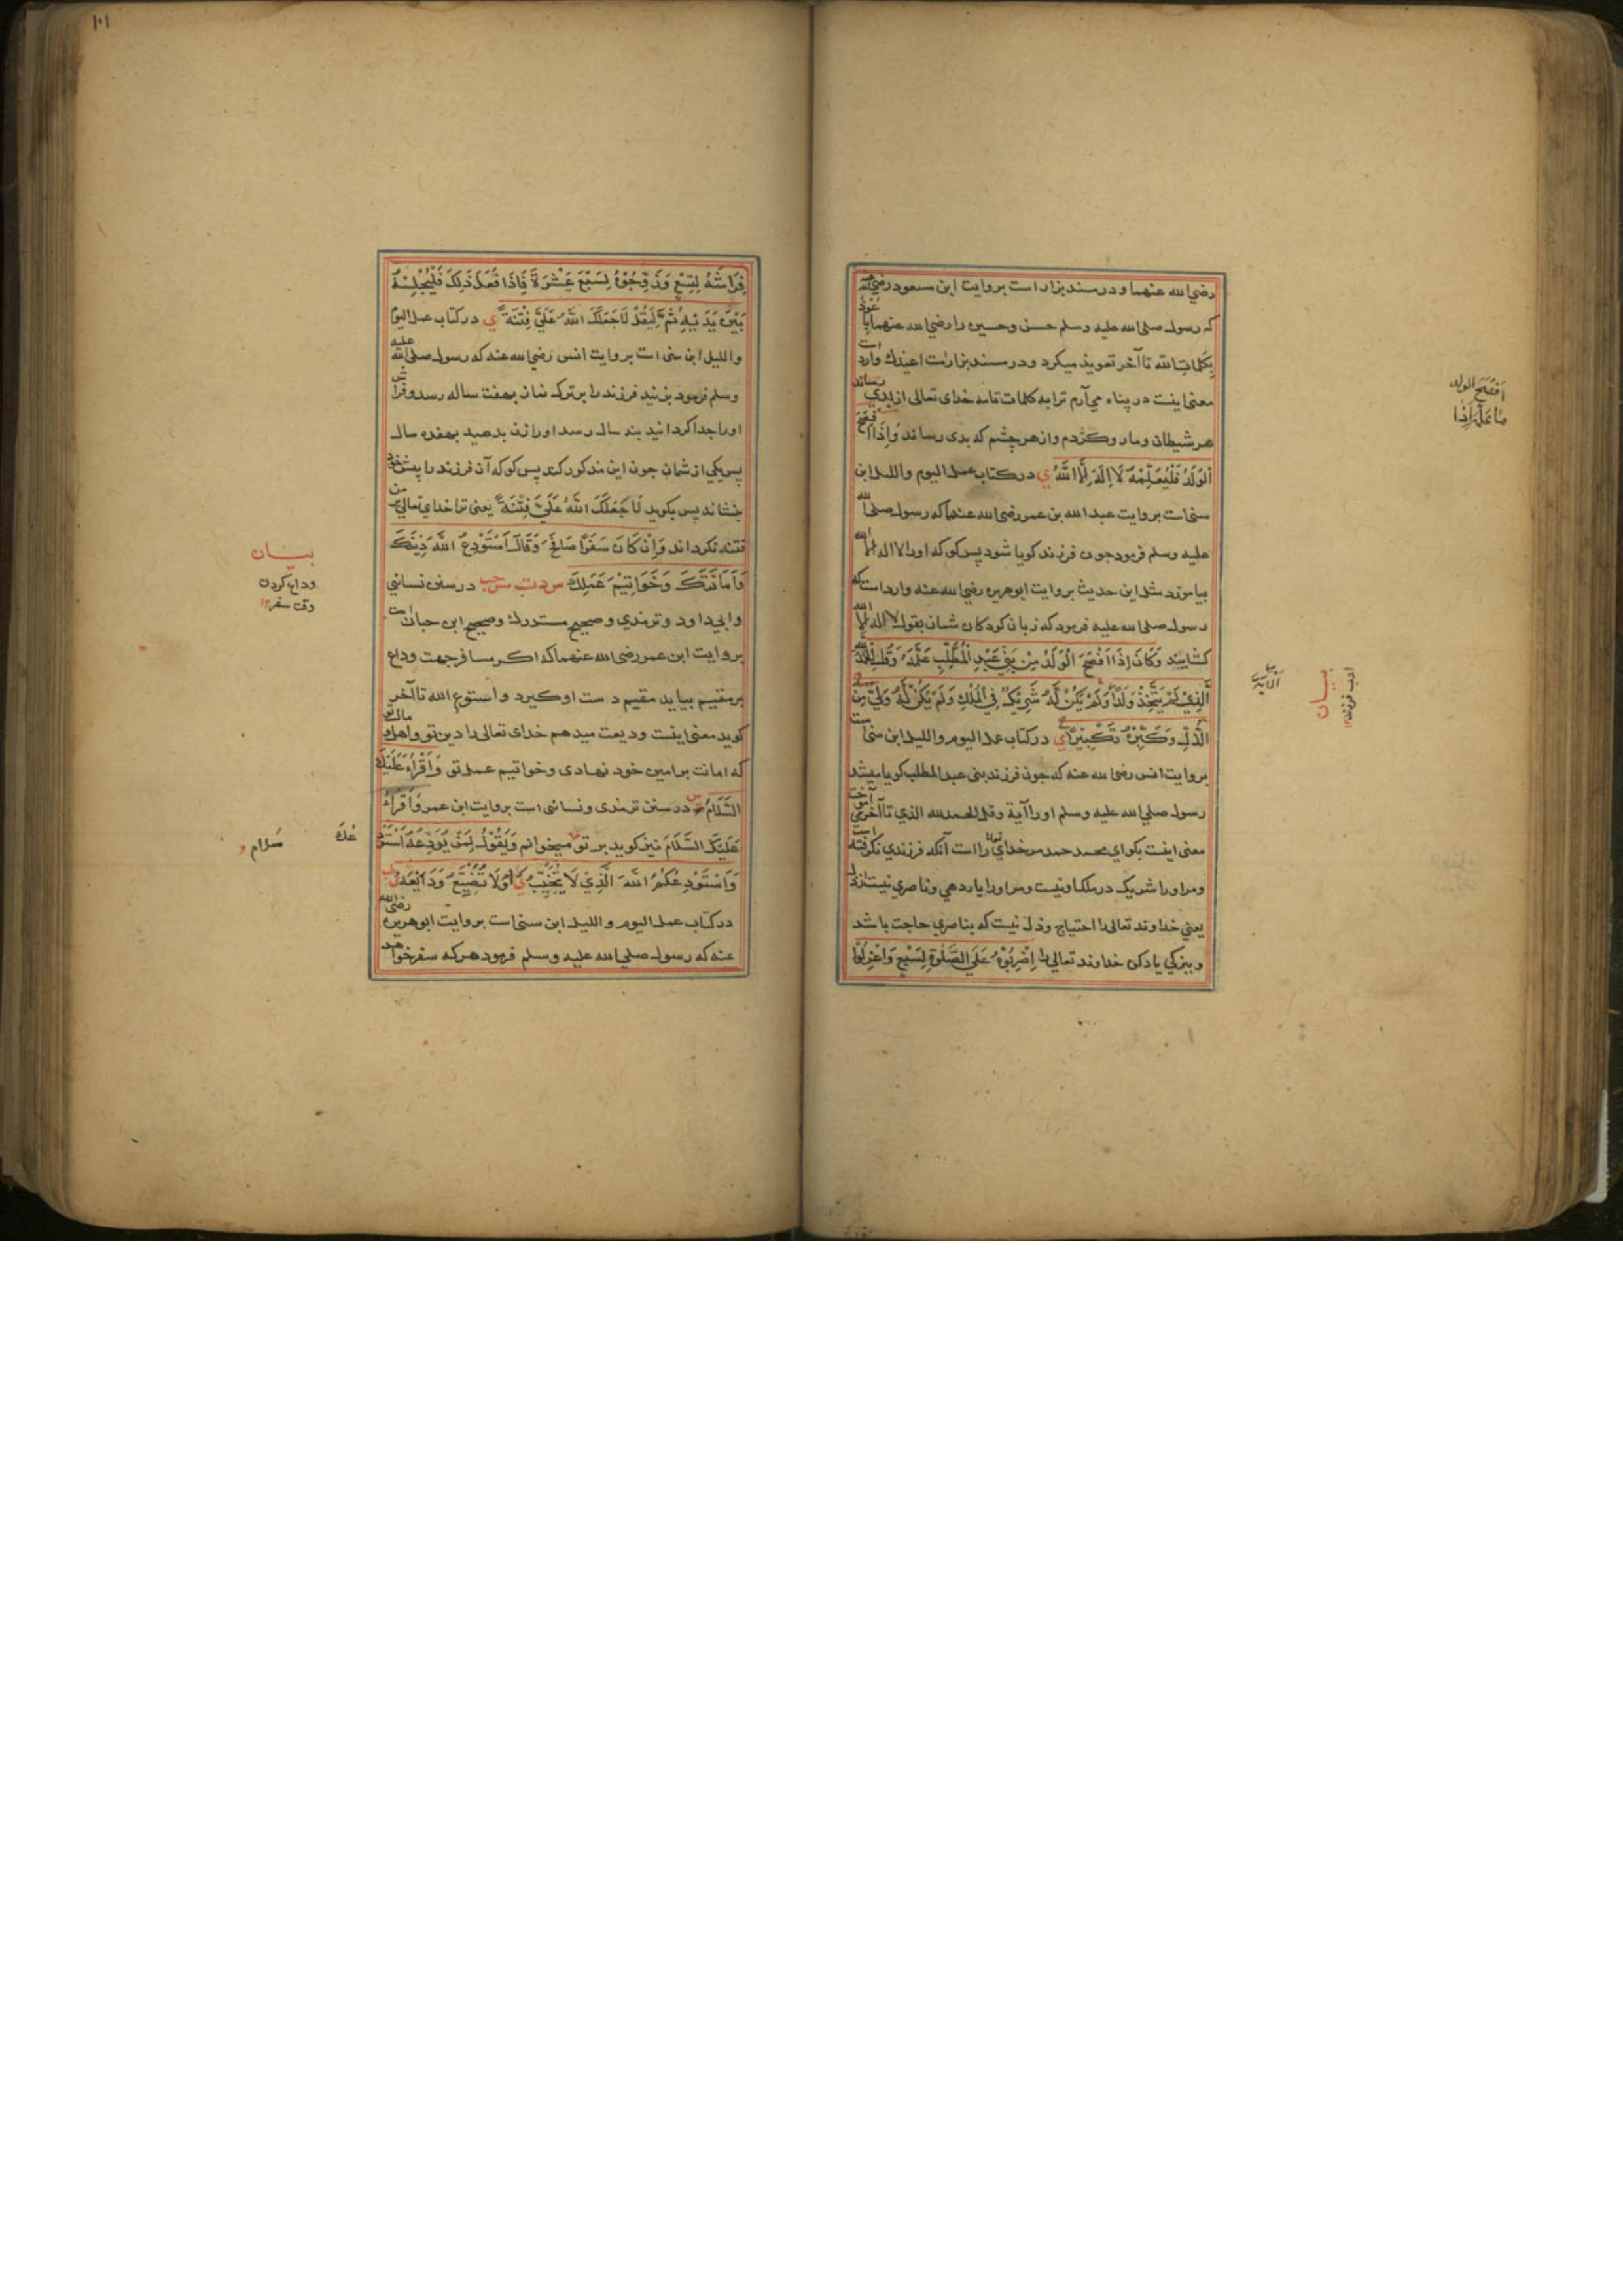 رضي الله عنهما و در مسند بزار است بروايت ابن مسعود رضي الله
كه رسول صلى الله عليه وسلم حسن وحسين را رضي الله عنهما
بكلمات الله تا آخر تعويذ ميكرد و در مسند بزار است اعيذك وارد است
معنى اينست در پناه مي آرم ترا به كلمات تامه خداى تعالى از بدي
هر شيطان و مار و كژدم و از هر چشم كه بدى رساند وَاِذَا اَفْصَحَ
الْوَلَدُ فَلْيُعَلِّمْهُ لَا اِلٰهَ اِلَّا اللّٰهُ ي در كتاب عمل اليوم والليل ابن
سنى است بروايت عبد الله بن عمر رضى الله عنهما كه رسول صلى الله
عليه وسلم فرمود جون فرزند كويا شود پس كو كه او را لا اله الا الله
بياموزد مثل اين حديث بروايت ابو هريره رضي الله عنه وارد است كه
رسول صلى الله عليه فرمود كه زبان كودكان شمان بقول لا اله الا الله
كشاييد وَكَانَ اِذَا اَفْصَحَ الْوَلَدُ مِنْ بَنِي عَبْدِ الْمُطَّلِبِ عَلَّمَهُ وَقُلِ الْحَمْدُ لِلّٰهِ
الَّذِيْ لَمْ يَتَّخِذْ وَلَدًا وَلَمْ يَكُنْ لَّهُ شَرِيْكٌ فِي الْمُلْكِ وَلَمْ يَكُنْ لَّهُ وَلِيٌّ مِنَ
الذُّلِّ وَكَبِّرْهُ تَكْبِيْرًا ي در كتاب عمل اليوم والليل ابن سنى است
بروايت انس رضى الله عنه كه جون فرزند بنى عبد المطلب كويا ميشد
رسول صلي الله عليه وسلم او را آية وقل الحمد لله الذي تا آخر مى آموخت
معنى اينست بكو اى محمد حمد مر خداي را است آنكه فرزندي نكرفته است
و مر او را شريك در ملك او نيست و مر او را يارد هي و ناصري نيست از ذل
يعني خداوند تعالى را احتياج و ذل نيست كه بناصري حاجت باشد
و ببزركي ياد كن خداوند تعالى را اِضْرِبُوْهُ عَلَى الصَّلٰوةِ لِسَبْعٍ وَاعْزِلُوْا
اَفْصَحَ الولد
بيان
ادب فرزند
الآية
١٠١
فِرَاشَهُ لِتِسْعٍ وَزَوِّجُوْهُ لِسَبْعَ عَشْرَةَ فَاِذَا فَعَلَ ذٰلِكَ فَلْيُجْلِسْهُ
بَيْنَ يَدَيْهِ ثُمَّ لِيَقُلْ لَا جَعَلَكَ اللّٰهُ عَلَيَّ فِتْنَةً ي در كتاب عمل اليوم
والليل ابن سنى است بروايت انس رضي الله عنه كه رسول صلى الله عليه
وسلم فرمود بزنيد فرزند را بر ترك نماز بهفت ساله رسد و فراش
او را جدا كردانيد بنه سال رسد او را زن بدهيد بهفده سال
پس يكي از شمان جون اين مذكور كند پس كو كه آن فرزند را پيش خود
بنشاند پس بكويد لَا جَعَلَكَ اللّٰهُ عَلَيَّ فِتْنَةً يعنى ترا خداي تعالى بر من
فتنه نكرداند وَاِنْ كَانَ سَفَرًا صَافَحَ وَقَالَ اَسْتَوْدِعُ اللّٰهَ دِيْنَكَ
وَاَمَانَتَكَ وَخَوَاتِيْمَ عَمَلِكَ س د ت مس حب در سنن نسائي
و ابي داود و ترمذي و صحيح مستدرك و صحيح ابن حبان است
بروايت ابن عمر رضى الله عنهما كه اكر مسافر جهت وداع
بر مقيم بيايد مقيم دست او كيرد و استودع الله تا آخر
كويد معنى اينست وديعت ميدهم خداى تعالى را دين تو و اهل و مال تو
كه امانت بر امين خود نهادى و خواتيم عمل تو وَاَقْرَاُ عَلَيْكَ
السَّلَامُ س در سنن ترمذى و نسائى است بروايت ابن عمر وَاَقْرَاُ
عَلَيْكَ السَّلَامَ نيز كويد بر تو ميخوانم وَيَقُوْلُ لِمَنْ يُوَدِّعُهُ اَسْتَوْدِعُكَ
وَاَسْتَوْدِعُكُمُ اللّٰهَ الَّذِيْ لَا يُخَيِّبُ اَوْ لَا تَضِيْعُ وَدَائِعُهُ
در كتاب عمل اليوم والليل ابن سنى است بروايت ابو هريره رضى الله
عنه كه رسول صلي الله عليه وسلم فرمود هر كه سفر خواهد
بيان
وداع كردن
وقت سفر ١٢
سَلام